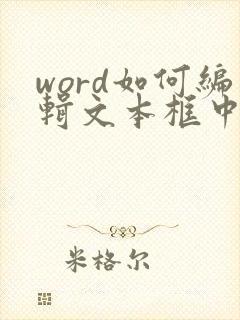 word如何編
輯文本框中
米格尔